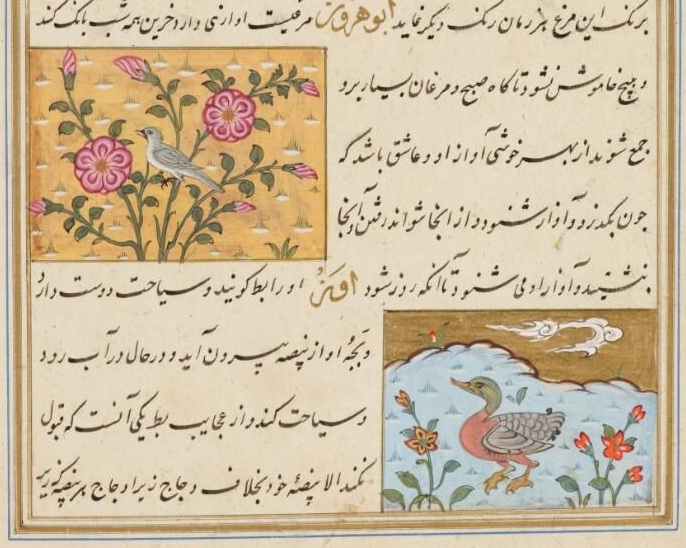 برنک این مرغ هر زمان رنک دیگر نماید ابو هرون مرغیست آوازی دارد حزین همه شب بانک کند
و هیچ خاموش نشود تا کاه صبح و مرغان بسیار برو
جمع شوند از بهر خوشی آواز او و عاشق باشد که
چون بکذرد و آواز شنود و از انجا نتواند رفتن و آنجا
بنشیند و آواز او می شنود تا آنکه روز شود اوز او را بط کویند و سیاحت دوست دارد
و بجه او از بیضه بیرون آید و در حال در آب رود
و سیاحت کند و از عجایب بط یکی آنست که قبول
نکند الا بیضهٔ خود بخلاف دجاج زیرا دجاج هر بیضه که زیر